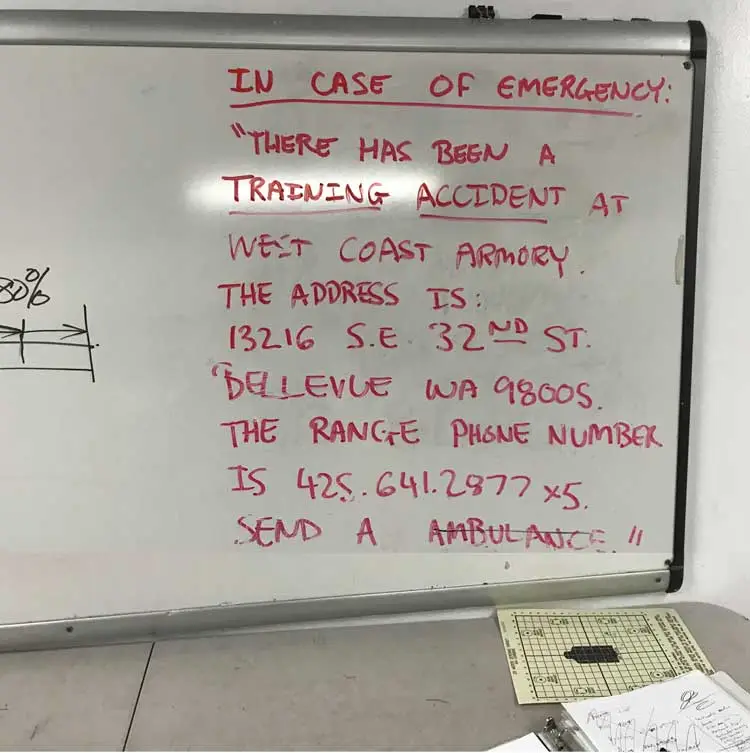 IN CASE OF EMERGENCY:
"THERE HAS BEEN A
TRAINING ACCIDENT AT
WEST COAST ARMORY.
THE ADDRESS IS:
13216 S.E. 32ND ST.
BELLEVUE WA 98005.
THE RANGE PHONE NUMBER
IS 425.641.2877 x5.
SEND A AMBULANCE."
80%